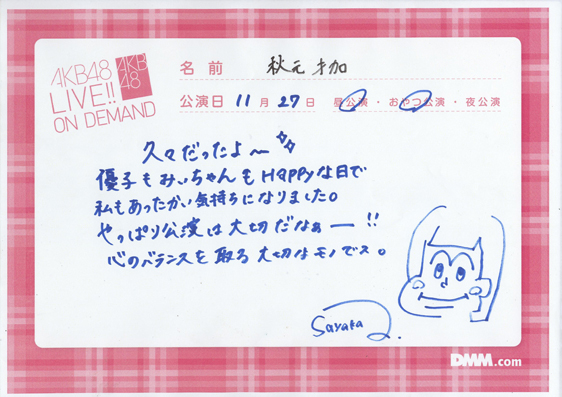 AKB48
LIVE!!
ON DEMAND
AKB
48
名前 秋元才加
公演日 11月27日 ・昼公演・おやつ公演・夜公演
久々だったよ〜
優子もみぃちゃんもHAPPyな日で
私もあったかい気持ちになりました。
やっぱり公演は大切だなぁー!!
心のバランスを取る大切なモノでス。
Sayaka
DMM.com